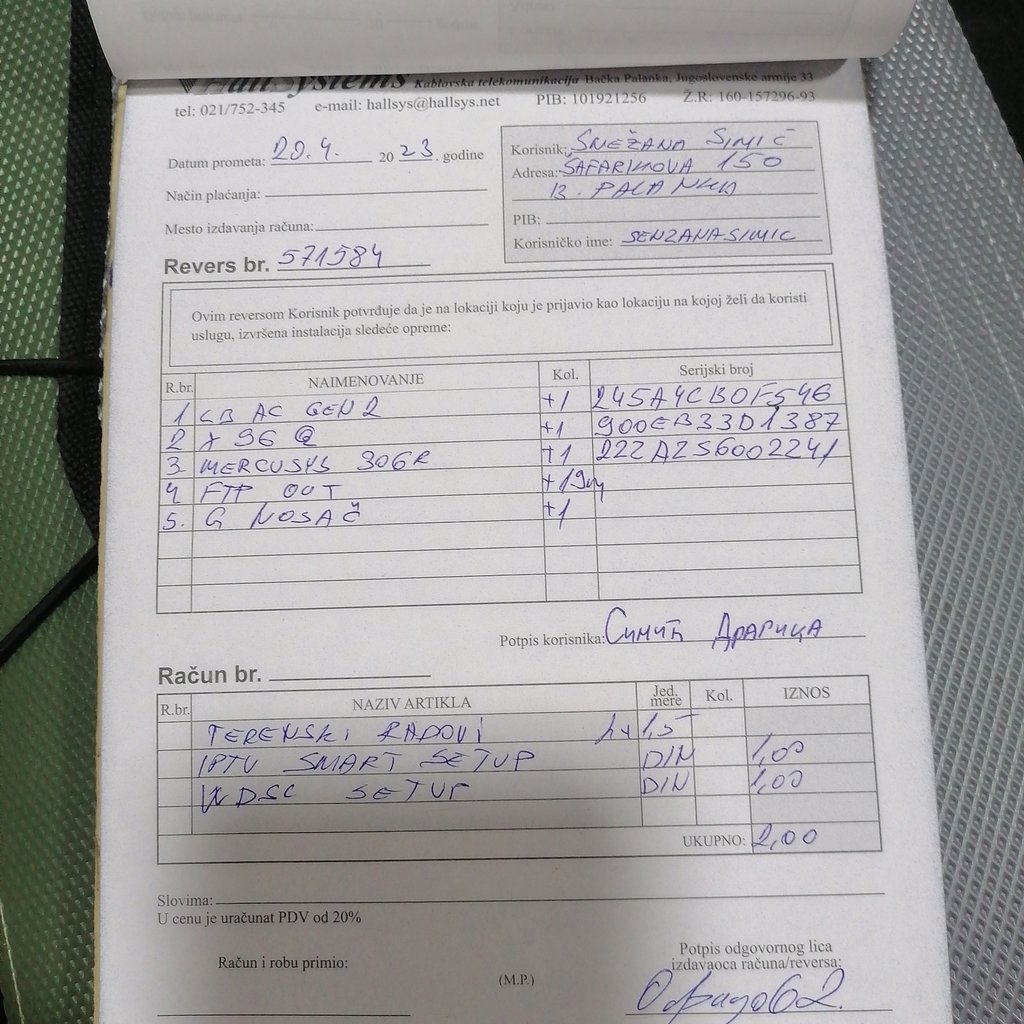 HallSystems Kablovska telekomunikacija Bačka Palanka, Jugoslovenske armije 33
tel: 021/752-345 e-mail: hallsys@hallsys.net PIB: 101921256 Ž.R: 160-157296-93
Datum prometa: 20.4. 2023. godine
Način plaćanja:
Mesto izdavanja računa:
Revers br. 571584
Korisnik: SNEŽANA SIMIĆ
Adresa: ŠAFARIKOVA 150
B. PALANKA
PIB:
Korisničko ime: SENZANASIMIC
Ovim reversom Korisnik potvrđuje da je na lokaciji koju je prijavio kao lokaciju na kojoj želi da koristi
uslugu, izvršena instalacija sledeće opreme:
R.br. NAIMENOVANJE Kol. Serijski broj
1 LB AC GEN 2 +1 245A4CB0F546
2 X 96 Q +1 900EB33D1387
3 MERCUSYS 306R +1 222AZS6002241
4 FTP OUT
5. G NOSAČ +1
Potpis korisnika: Симић Драгица
Račun br.
R.br. NAZIV ARTIKLA Jed. mere Kol. IZNOS
TERENSKI RADOVI 1,5
IPTV SMART SETUP DIN 1,00
WDSL SETUP DIN 1,00
UKUPNO: 2,00
Slovima:
U cenu je uračunat PDV od 20%
Račun i robu primio:
(M.P.)
Potpis odgovornog lica
izdavaoca računa/reversa: